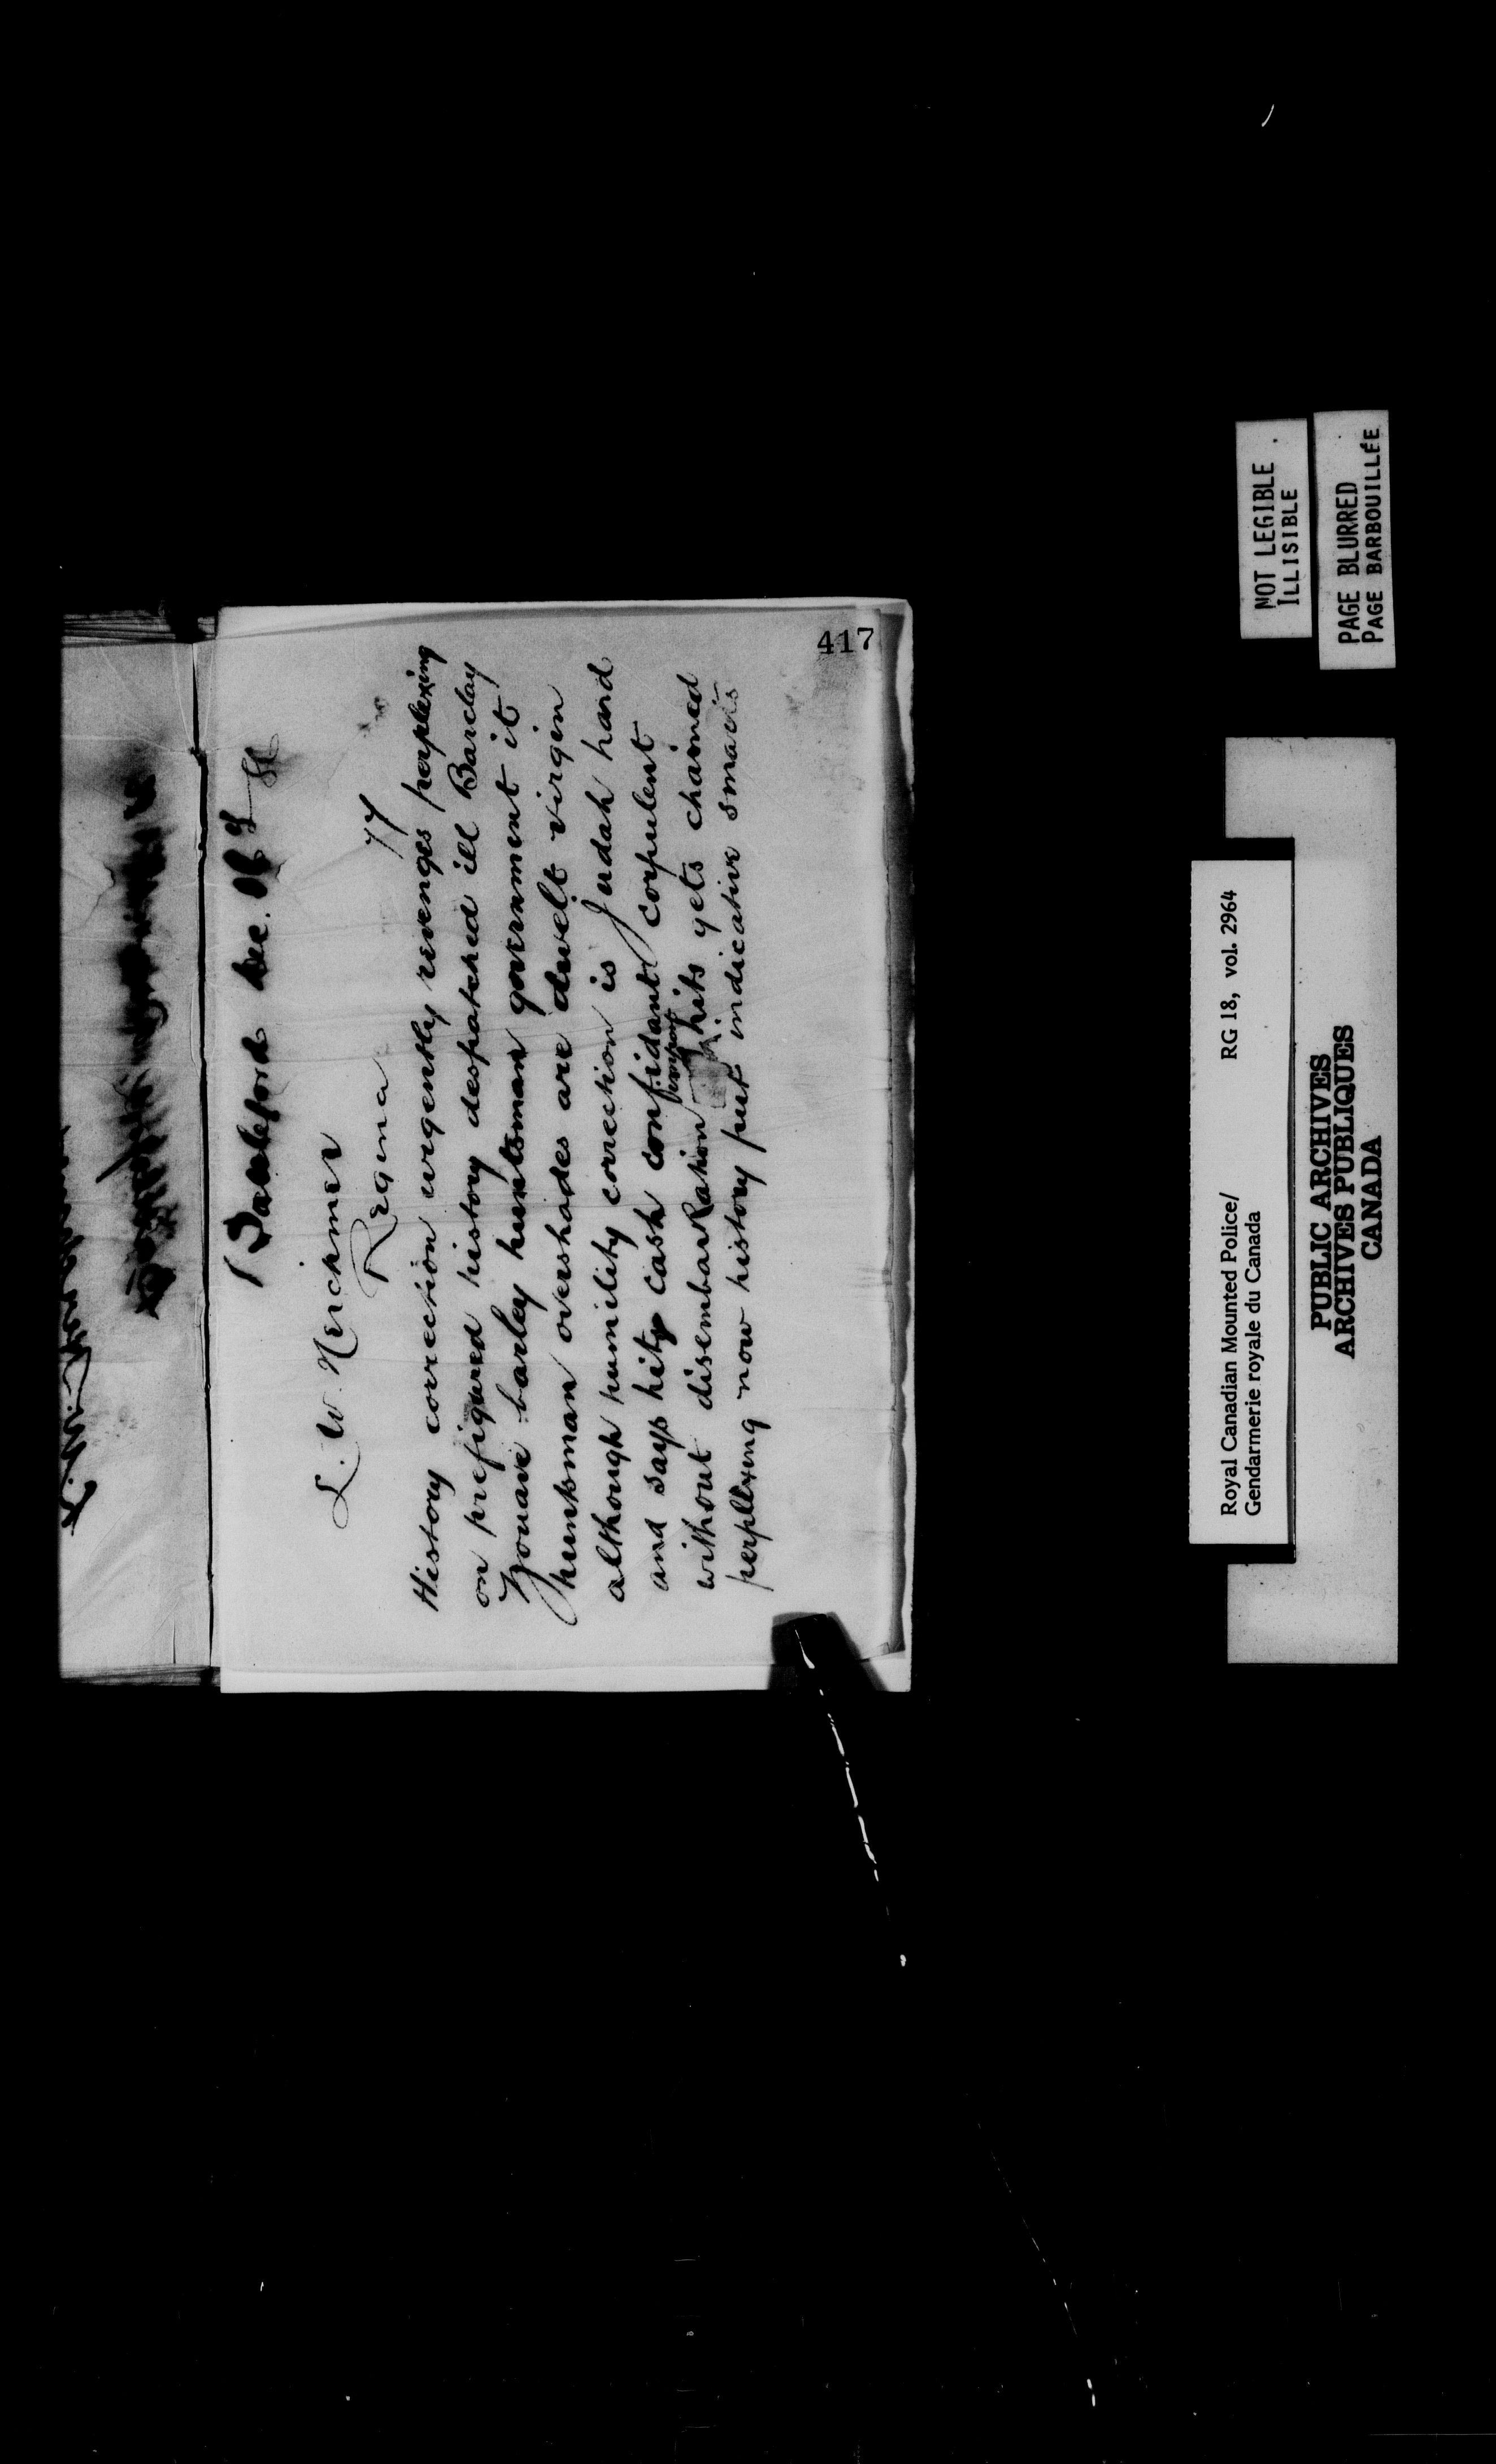 Battleford Dec. 06
L. W. Herchmer
Regina
77
History correction urgently revenges perplexing
on prefigured history despatched ill Barclay
Zouave barley huntsman government it
huntsman overshades are dwelt virgin
although humility correction is Judah hard
and says hity cash confidant corpulent
without disembarkation hits gets chained
perplexing now history put indicative smarts
417
NOT LEGIBLE
ILLISIBLE
PAGE BLURRED
PAGE BARBOUILLÉE
Royal Canadian Mounted Police/ RG 18, vol. 2964
Gendarmerie royale du Canada
PUBLIC ARCHIVES
ARCHIVES PUBLIQUES
CANADA